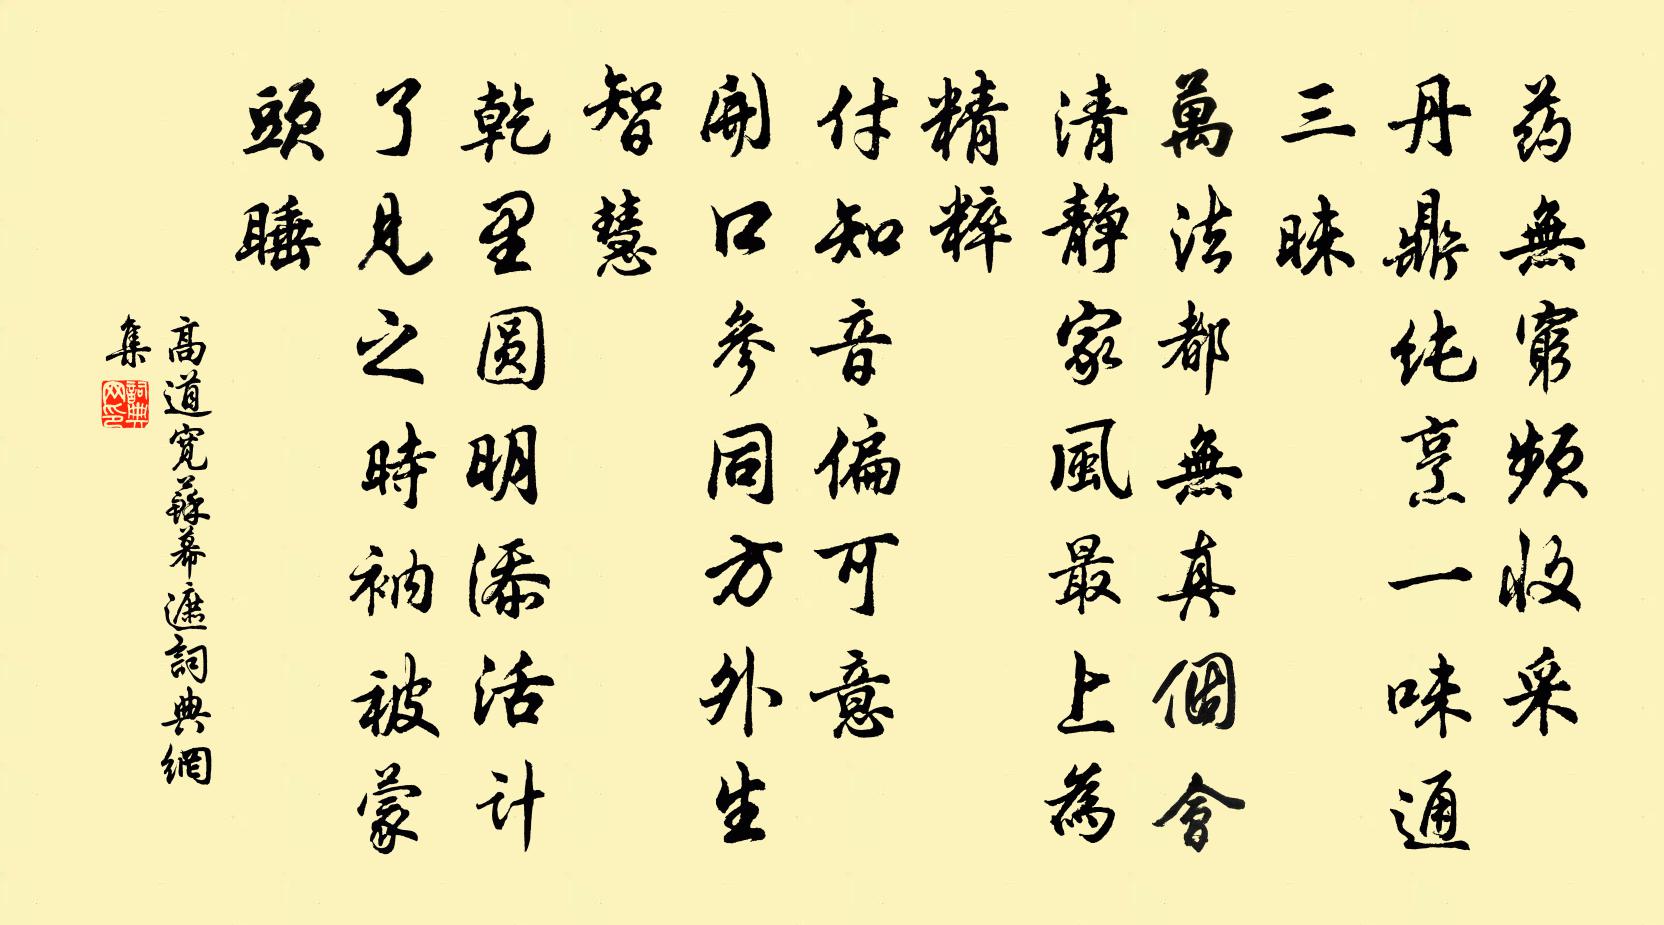 药無窮頻收采
丹鼎纯烹一味通
三昧
萬法都無真個會
清静家風最上為
精粹
付知音偏可意
開口參同方外生
智慧
乾里圆明添活计
了見之時衲被蒙
頭睡
高道寬蘇幕遮詞典網
集
詞典网印